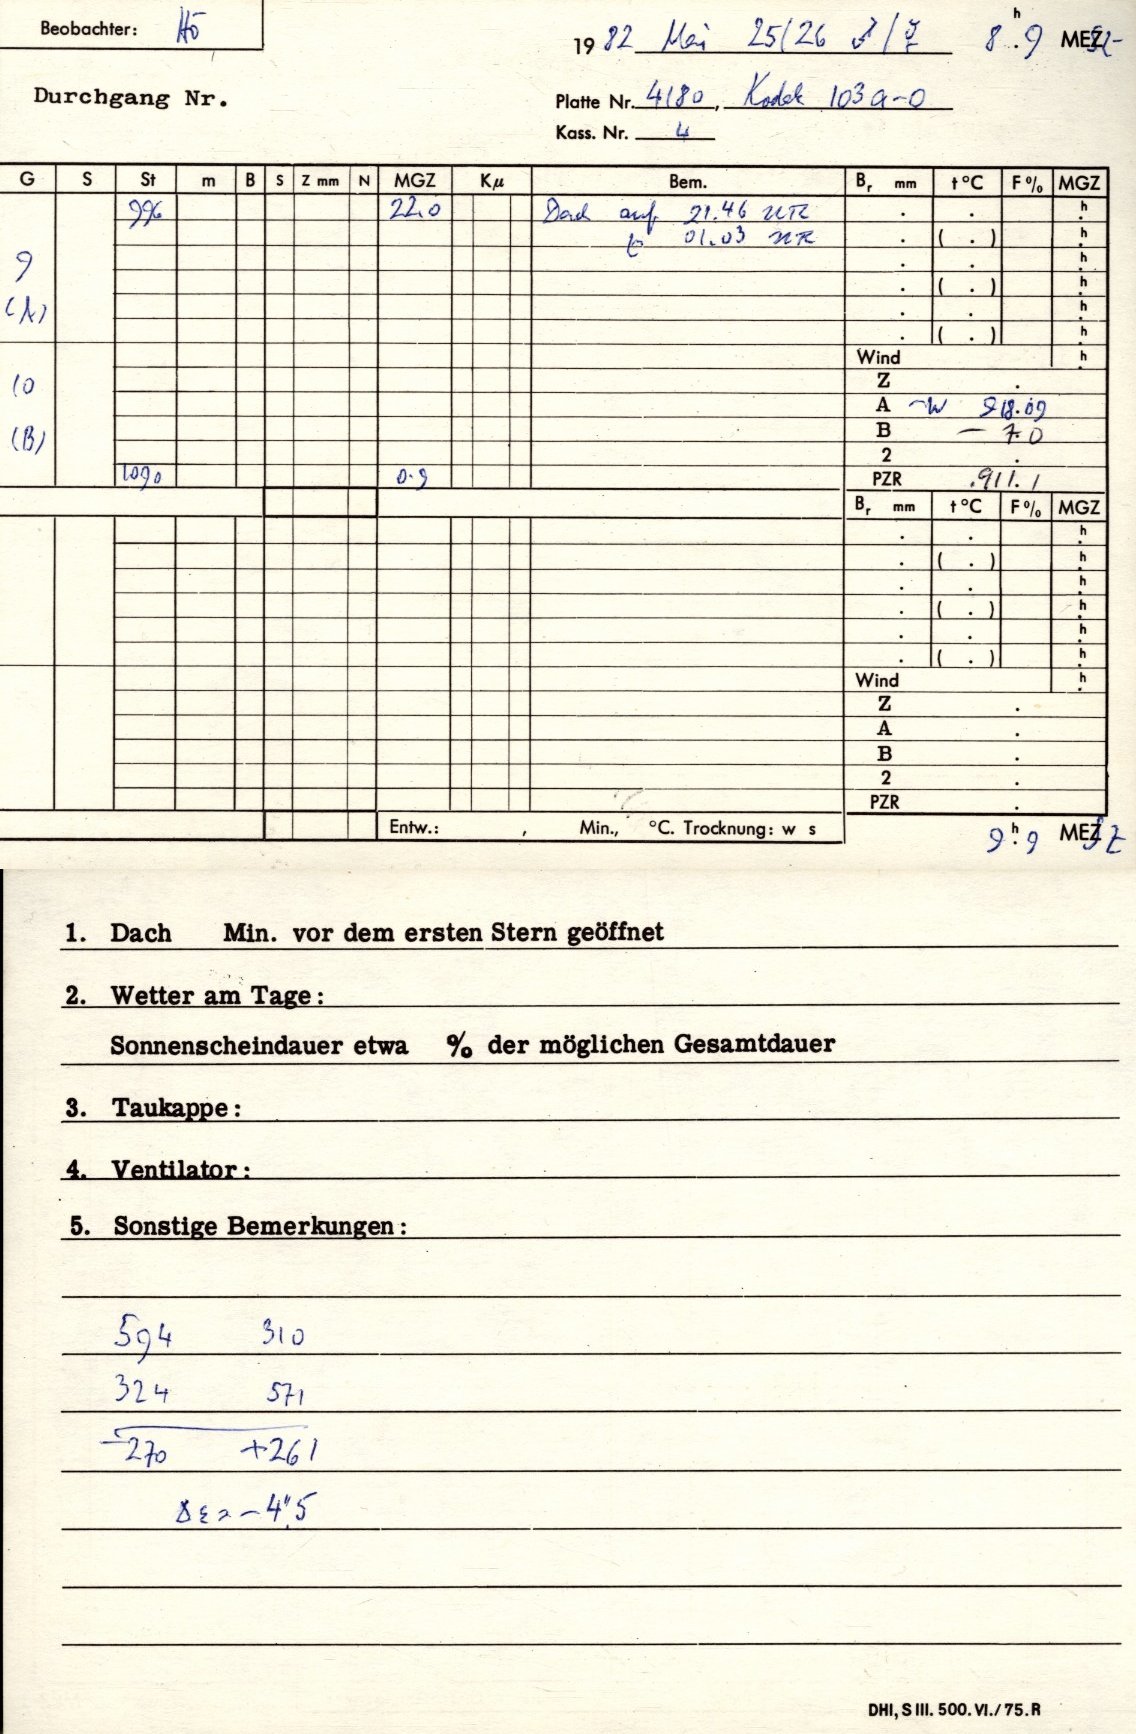 Beobachter: Hö
1982 Mai 25/26 ♂/☿ 8.h9 MEZ
Durchgang Nr.
Platte Nr. 4180, Kodak 103a-O
Kass. Nr. 4
G S St m B S Z mm N MGZ Kμ Bem. Br mm t°C F% MGZ
996 22.0 Dach auf 21.46 h
01.03 ( . ) h
9 h
( . ) h
(A) h
( . ) h
Wind h
10 Z
A ~W 918.09
(B) B – 7.0
2
1090 0.9 PZR .911.1
Br mm t°C F% MGZ
h
( . ) h
h
( . ) h
h
( . ) h
Wind h
Z
A
B
2
PZR
Entw.: , Min., °C. Trocknung: w s
9.h9 MEZ
1. Dach Min. vor dem ersten Stern geöffnet
2. Wetter am Tage:
Sonnenscheindauer etwa % der möglichen Gesamtdauer
3. Taukappe:
4. Ventilator:
5. Sonstige Bemerkungen:
594 310
324 571
–270 +261
Δε = –4."5
DHI, S III. 500. VI./75. R